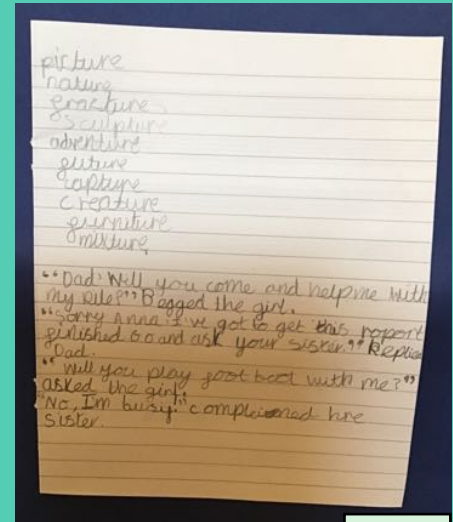 picture
nature
fracture
sculpture
adventure
future
capture
creature
furniture
mixture
"Dad. Will you come and help me with
my  Begged the girl.
"Sorry Anna I've got to get this report
finished Go and ask your sister." Replied
Dad.
"Will you play foot boot with me?"
asked the girl.
"No, I'm busy." complained hre
sister.